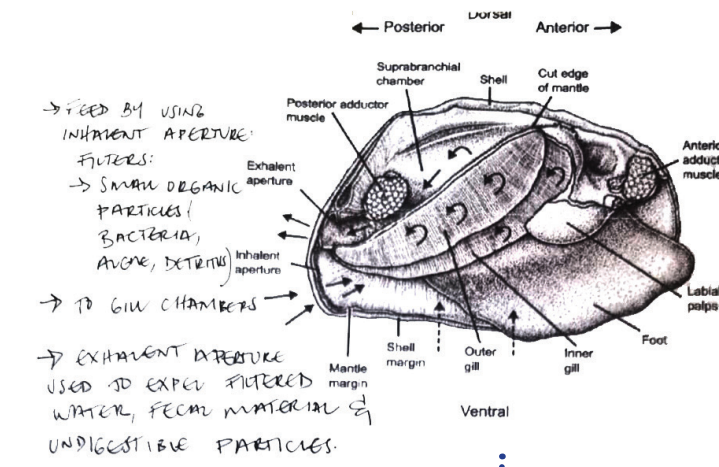 Dorsal
← Posterior
Anterior →
Suprabranchial
chamber
Shell
Cut edge
of mantle
Posterior adductor
muscle
Anterio
adducto
muscle
Exhalent
aperture
Inhalent
aperture
Labial
palps
Foot
Inner
gill
Outer
gill
Shell
margin
Mantle
margin
Ventral
→ FEED BY USING
INHALENT APERTURE:
FILTERS:
→ SMALL ORGANIC
PARTICLES (
BACTERIA,
ALGAE, DETRITUS)
→ TO GILL CHAMBERS
→ EXHALENT APERTURE
USED TO EXPEL FILTERED
WATER, FECAL MATERIAL &
UNDIGESTIBLE PARTICLES.